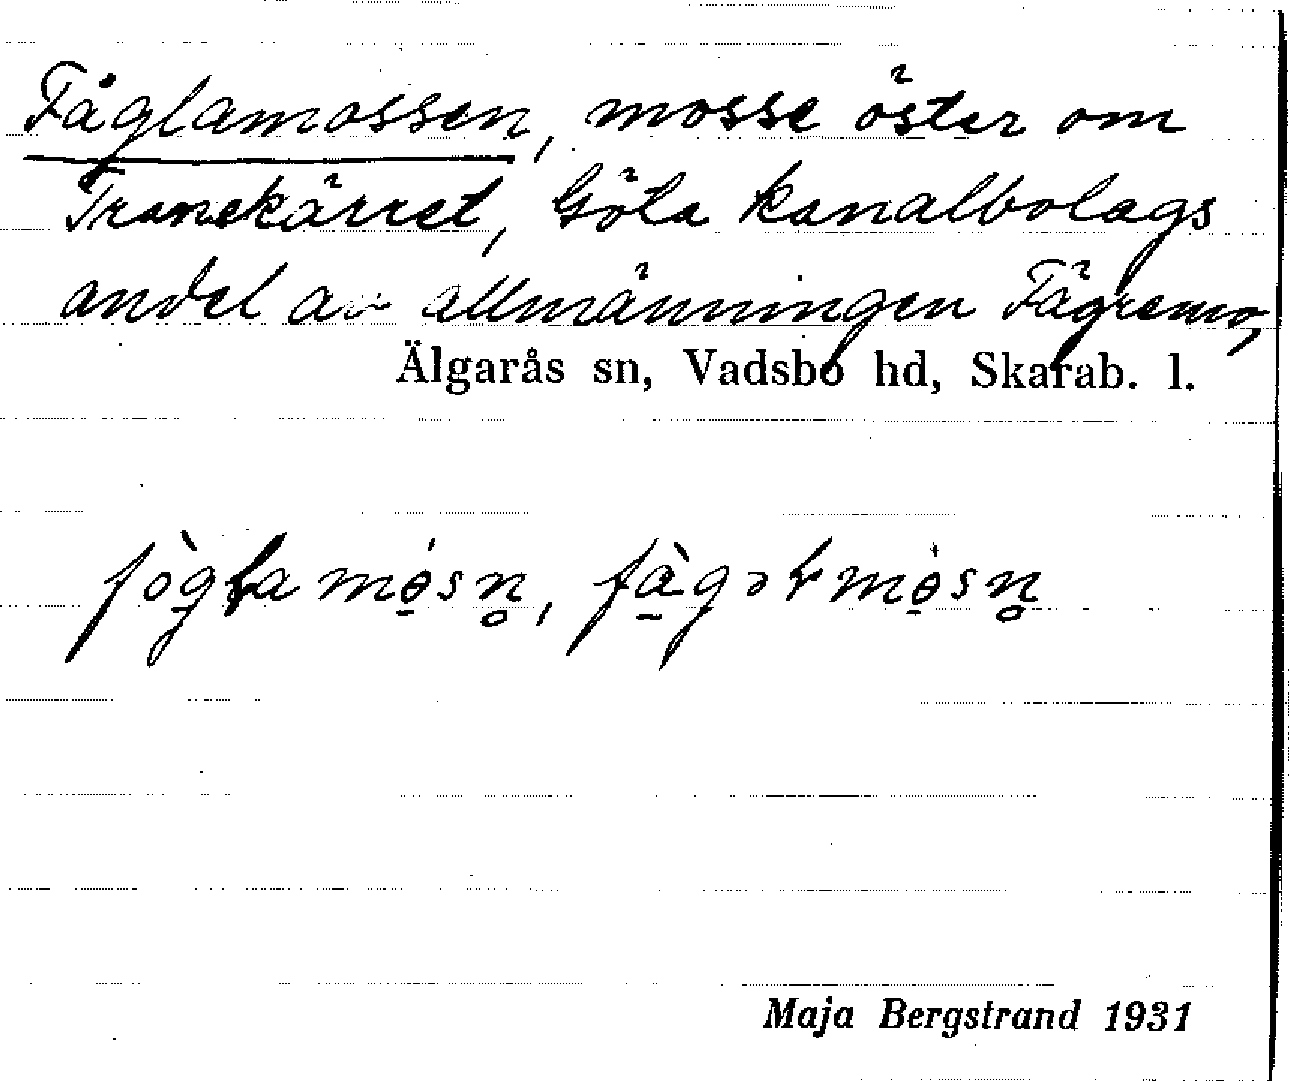 Fåglamossen, mosse öster om
Tranekärret, Göta kanalbolags
andel av allmänningen Fägremo,
Älgarås sn, Vadsbo hd, Skarab. l.
Maja Bergstrand 1931